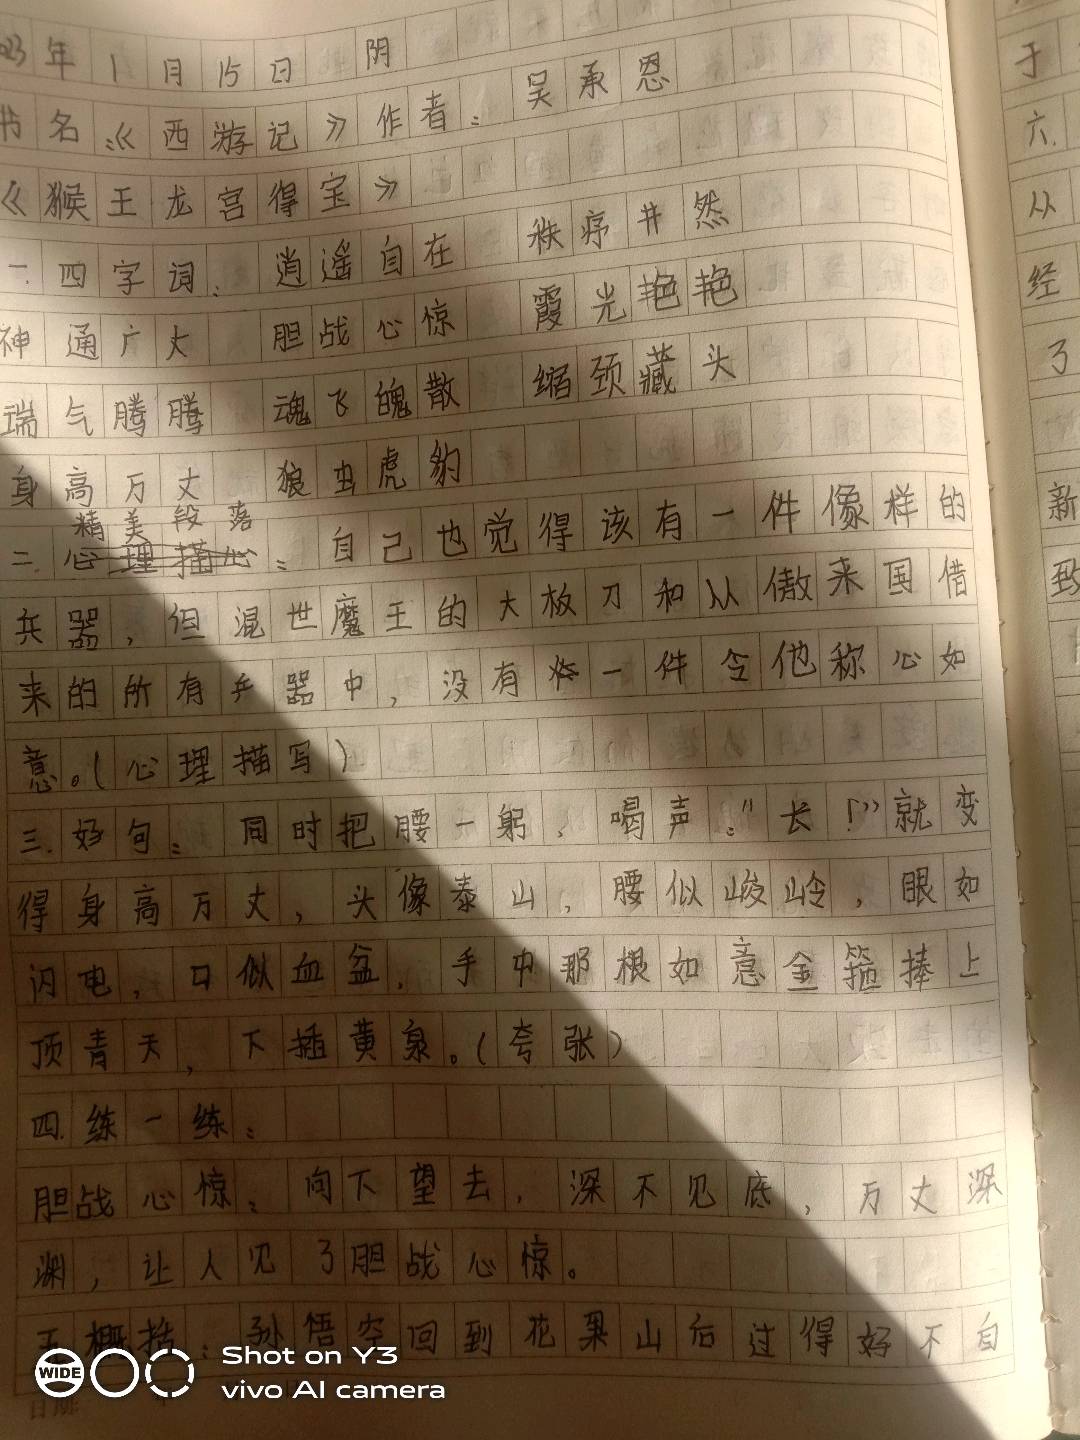 23年1月15日 阴
书名:《西游记》作者:吴承恩
《猴王龙宫得宝》
一.四字词: 逍遥自在 秩序井然
神通广大 胆战心惊 霞光艳艳
瑞气腾腾 魂飞魄散 缩颈藏头
身高万丈 狼虫虎豹
精美段落
二.心理描心:自己也觉得该有一件像样的
兵器,但混世魔王的大板刀和从傲来国借
来的所有乒器中,没有一件令他称心如
意。(心理描写)
三.好句: 同时把腰一躬,喝声:"长!"就变
得身高万丈,头像泰山,腰似峻岭,眼如
闪电,口似血盆,手中那根如意金箍捧上
顶青天,下插黄泉。(夸张)
四.练一练:
胆战心惊:向下望去,深不见底,万丈深
渊,让人见了胆战心惊。
五概括:孙悟空回到花果山后过得好不自
WIDE
Shot on Y3
vivo AI camera
于
六.
从
经
了
新
致